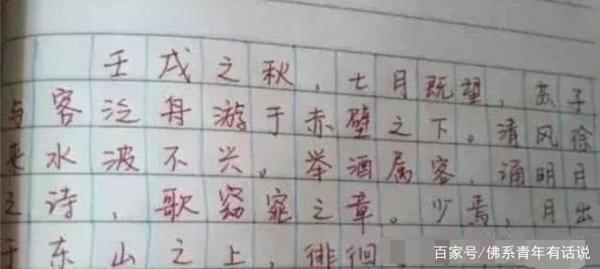 壬戌之秋，七月既望，苏子
与客泛舟游于赤壁之下。清风徐
来水波不兴。举酒属客，诵明月
之诗，歌窈窕之章。少焉，月出
于东山之上，徘徊
百家号/佛系青年有话说